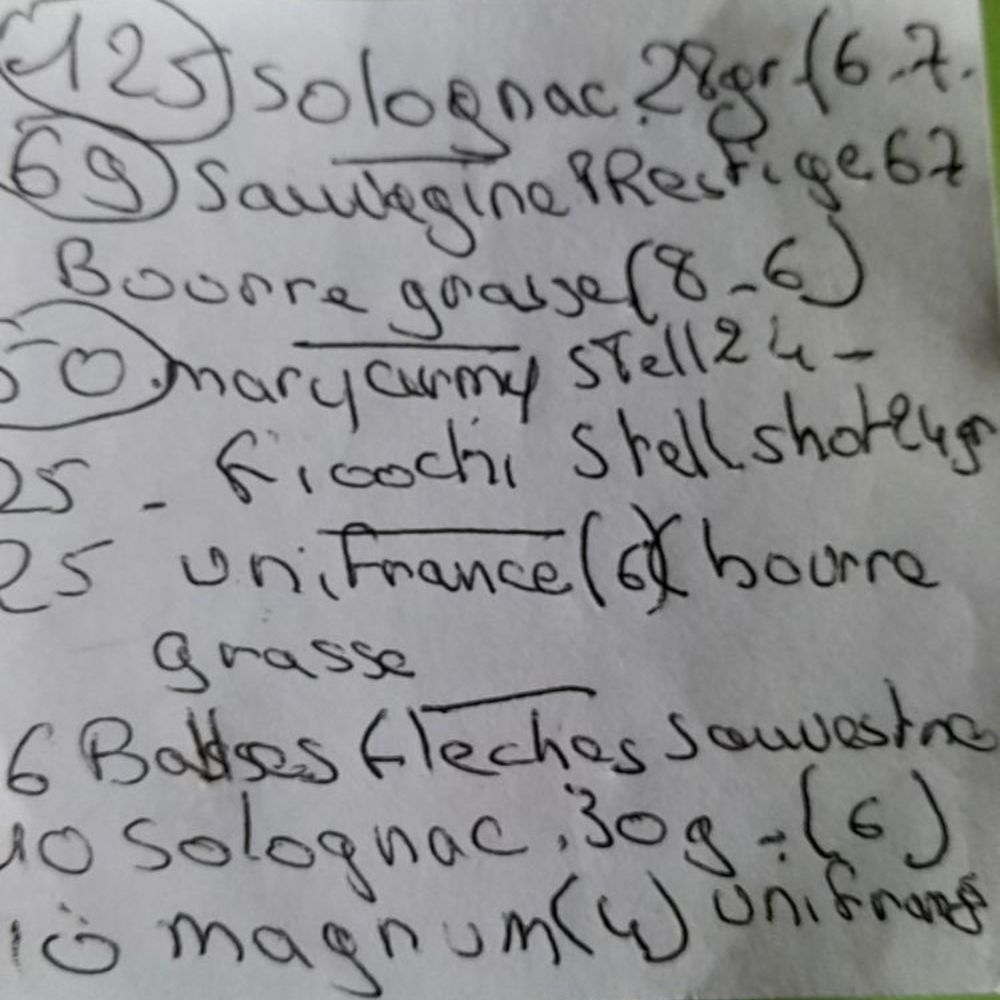 125 Solognac 28gr (6.7.
69 Sauvegine PRestige 67
Bourre grasse (8-6)
50. mary army stell 24-
25 - Ricochi stell shot 24gr
25 unifrance (6) bourre
grasse
6 Balles fleches sauvestre
10 Solognac .30g - (6)
10 magnum (4) unifrance